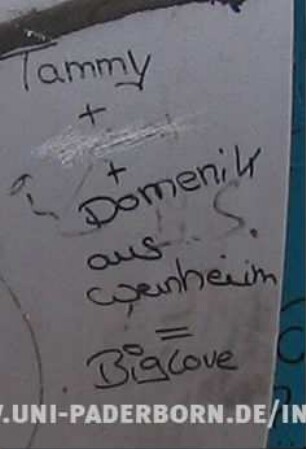 Tammy
+
+
Domenik
S.
aus
Weinheim
=
BigLove
.UNI-PADERBORN.DE/IN